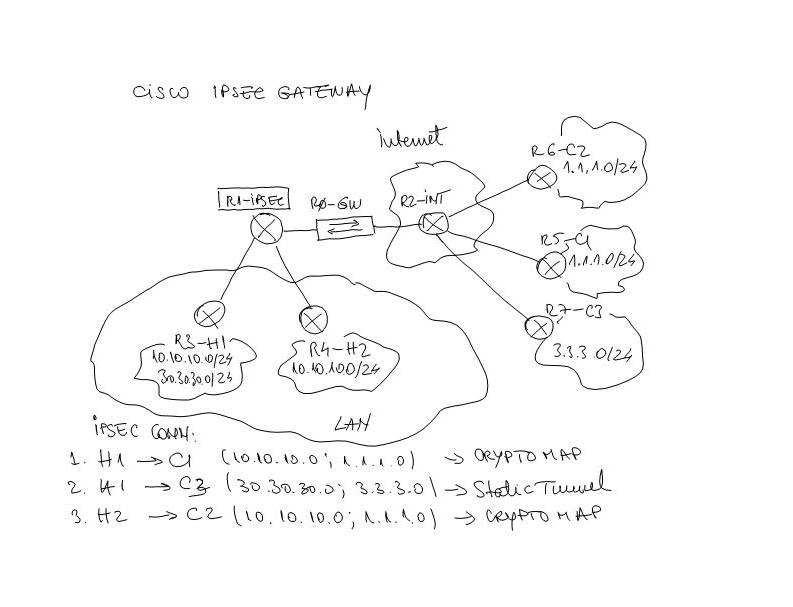 CISCO IPSEC GATEWAY
internet
R6-C2
1.1.1.0/24
R1-IPSEC
R0-GW
R2-INT
R5-C1
1.1.1.0/24
R7-C3
3.3.3.0/24
R3-H1
10.10.10.0/24
30.30.30.0/24
R4-H2
10.10.10.0/24
LAN
IPSEC CONN:
1. H1 → C1 (10.10.10.0; 1.1.1.0) → CRYPTO MAP
2. H1 → C3 (30.30.30.0; 3.3.3.0) → Static Tunnel
3. H2 → C2 (10.10.10.0; 1.1.1.0) → CRYPTO MAP